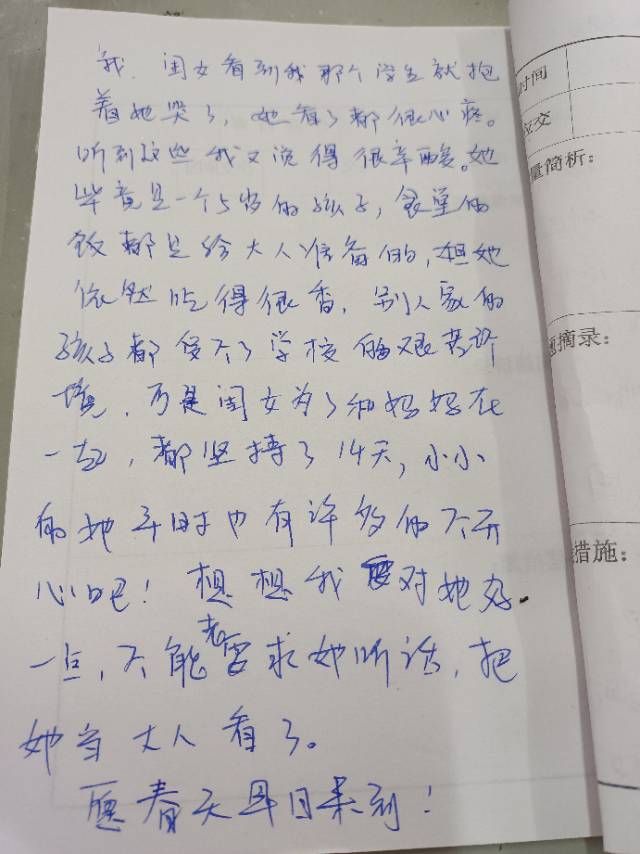 我，闺女看到我那个学生就抱
着她哭了，她看了都很心疼。
听到这些我又觉得很辛酸。她
毕竟是一个5岁的孩子，食堂的
饭都是给大人准备的，但她
依然吃得很香，别人家的
孩子都受不了学校的艰苦环
境，可是闺女为了和妈妈在
一起，都坚持了14天，小小
的她平时也有许多的不开
心吧！想想我要对她好
一点，不能老要求她听话，把
她当大人看了。
愿春天早日来到！
时间
交
量简析：
摘录：
措施：